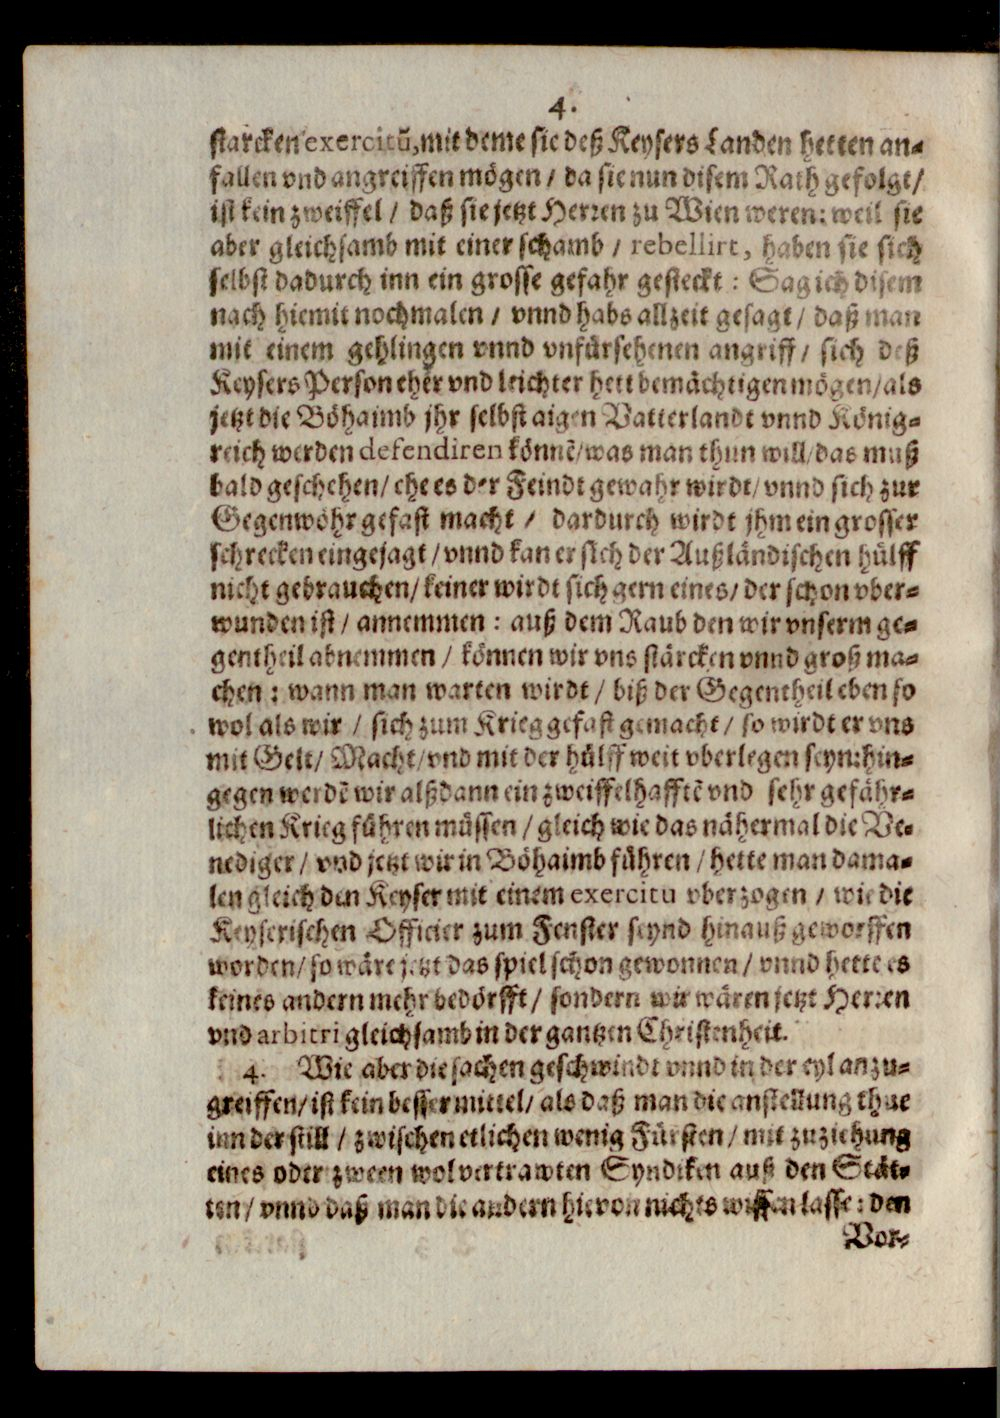 4.
starcken exercitũ, mit deme sie deß Keysers Landen hetten an-
fallen vnd angreiffen mögen / da sie nun disem Rath gefolgt /
ist kein zweiffel / daß sie jetzt Herren zu Wien weren: weil sie
aber gleichsamb mit einer schamb / rebellirt, haben sie sich
selbst dadurch inn ein grosse gefahr gesteckt : Sag ich disem
nach hiemit nochmalen / vnnd habs allzeit gesagt / daß man
mit einem gehlingen vnnd vnfürsehenen angriff / sich deß
Keysers Person eher vnd leichter hett bemächtigen mögen / als
jetzt die Böhaimb jhr selbst aigen Vatterlandt vnnd König-
reich werden defendiren könnẽ / was man thun will / das muß
bald geschehen / ehe es der Feindt gewahr wirdt / vnnd sich zur
Gegenwöhr gefast macht / dardurch wirdt jhm ein grosser
schrecken eingejagt / vnnd kan er sich der Außländischen hülff
nicht gebrauchen / keiner wirdt sich gern eines / der schon vber-
wunden ist / annemmen : auß dem Raub den wir vnserm ge-
gentheil abnemmen / können wir vns stärcken vnnd groß ma-
chen : wann man warten wirdt / biß der Gegentheil eben so
wol als wir / sich zum Krieg gefast gemacht / so wirdt er vns
mit Gelt / Macht / vnd mit der hülff weit vberlegen seyn: hin-
gegen werdẽ wir alßdann ein zweiffelhafftẽ vnd sehr gefähr-
lichen Krieg führen müssen / gleich wie das nähermal die Ve-
nediger / vnd jetzt wir in Böhaimb führen / hette man dama-
len gleich den Keyser mit einem exercitu vberzogen / wie die
Keyserischen Officier zum Fenster seynd hinauß geworffen
worden / so wäre jetzt das spiel schon gewonnen / vnnd hette es
keines andern mehr bedörfft / sondern wir wären jetzt Herren
vnd arbitri gleichsamb in der gantzen Christenheit.
4. Wie aber die sachen geschwindt vnnd in der eyl anzu-
greiffen / ist kein besser mittel / als daß man die anstellung thue
inn der still / zwischen etlichen wenig Fürsten / mit zuziehung
eines oder zween wolvertrawten Syndiken auß den Stät-
ten / vnnd daß man die andern hievon nichts wissen lasse : den
Vor-